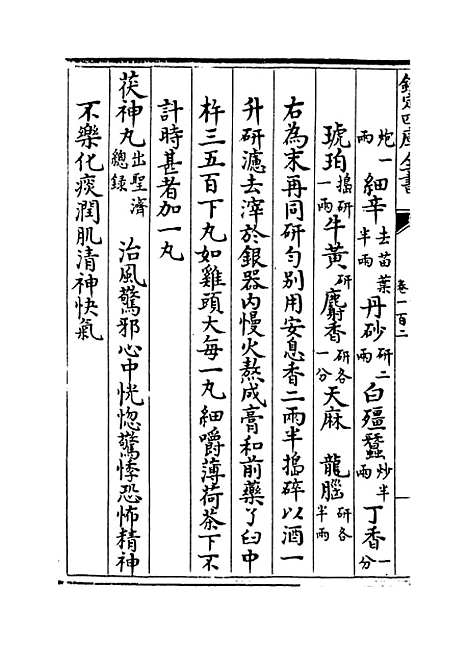 欽定四庫全書
卷一百二
炮一兩 細辛去苗葉半兩 丹砂研二兩 白殭蠶炒半兩 丁香一分
琥珀搗研一兩 牛黃研 麝香研各一分 天麻 龍腦研各半兩
右為末再同研勻別用安息香二兩半搗碎以酒一
升研濾去滓於銀器內慢火熬成膏和前藥了臼中
杵三五百下丸如雞頭大每一丸細嚼薄荷茶下不
計時甚者加一丸
茯神丸出聖濟總錄 治風驚邪心中恍惚驚悸恐怖精神
不樂化痰潤肌清神快氣